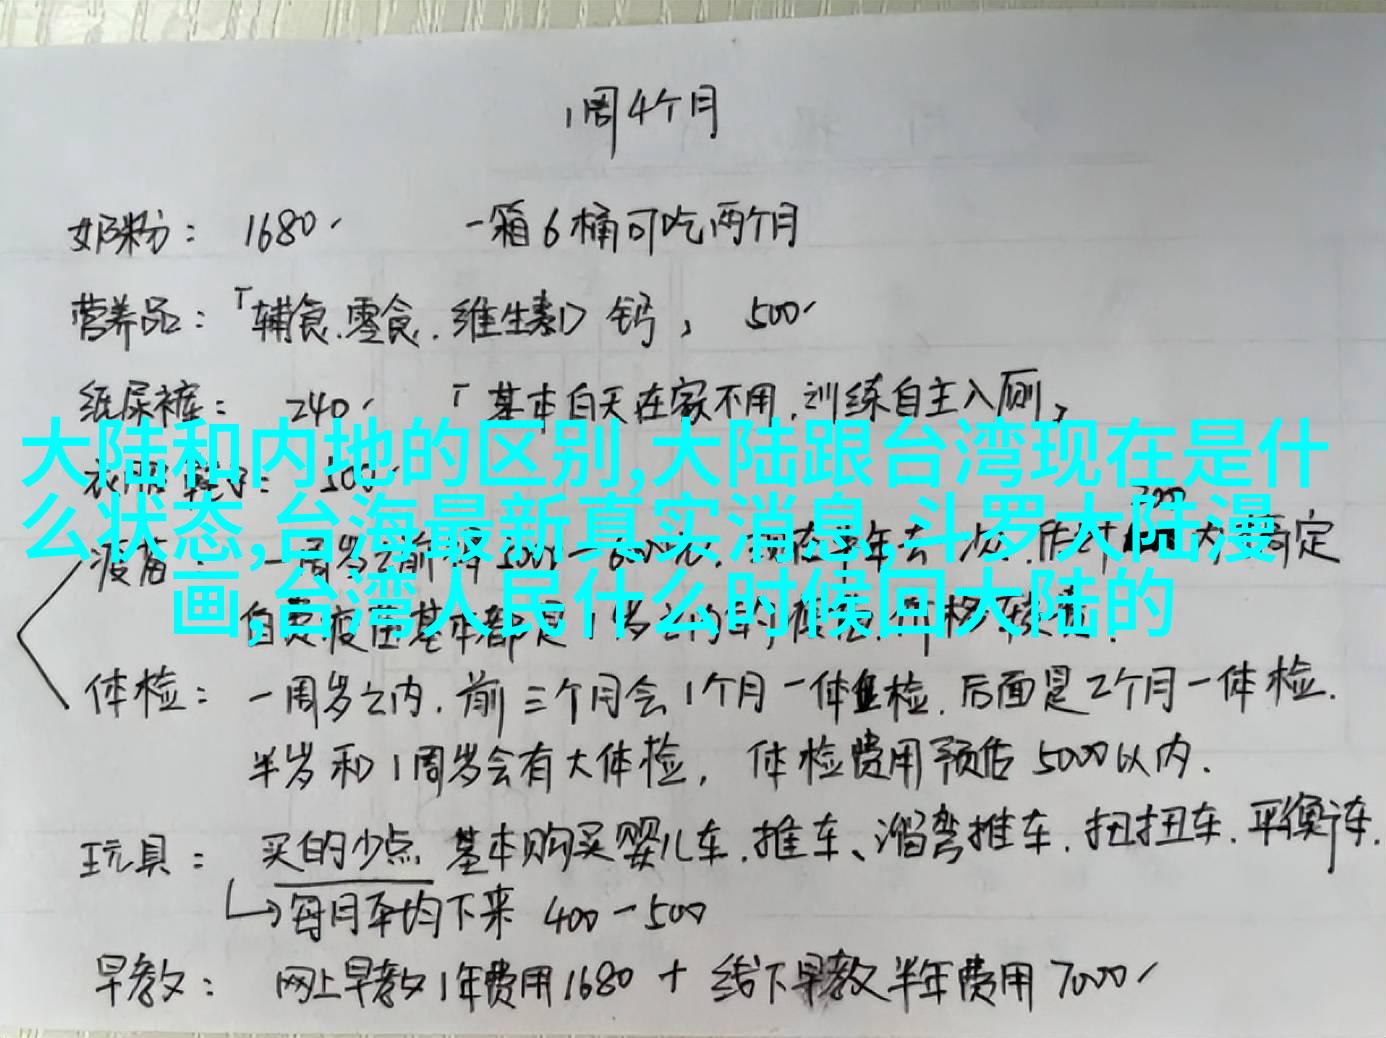 1周4个月
奶粉： 1680 一箱6桶可吃两个月
营养品：「辅食.零食.维生素D 钙， 500
纸尿裤： 240 「基本白天在家不用.训练自主入厕，
大陆和内地的区别,大陆跟台湾现在是什
衣服鞋子： 500
么状态,台海最新真实消息,斗罗大陆漫
疫苗： 一周岁之前 现在半年去一次.
画,台湾人民什么时候回大陆的
自费疫苗基本都是1岁之内的,
体检： 一周岁之内.前三个月会1个月一体检.后面是2个月一体检.
半岁和1周岁会有大体检， 体检费用预估5000以内.
玩具： 买的少点 基本购买婴儿车.推车、溜弯推车.扭扭车.平衡车.
每月平均下来 400-500
早教： 网上早教1年费用1680 + 线下早教半年费用7000